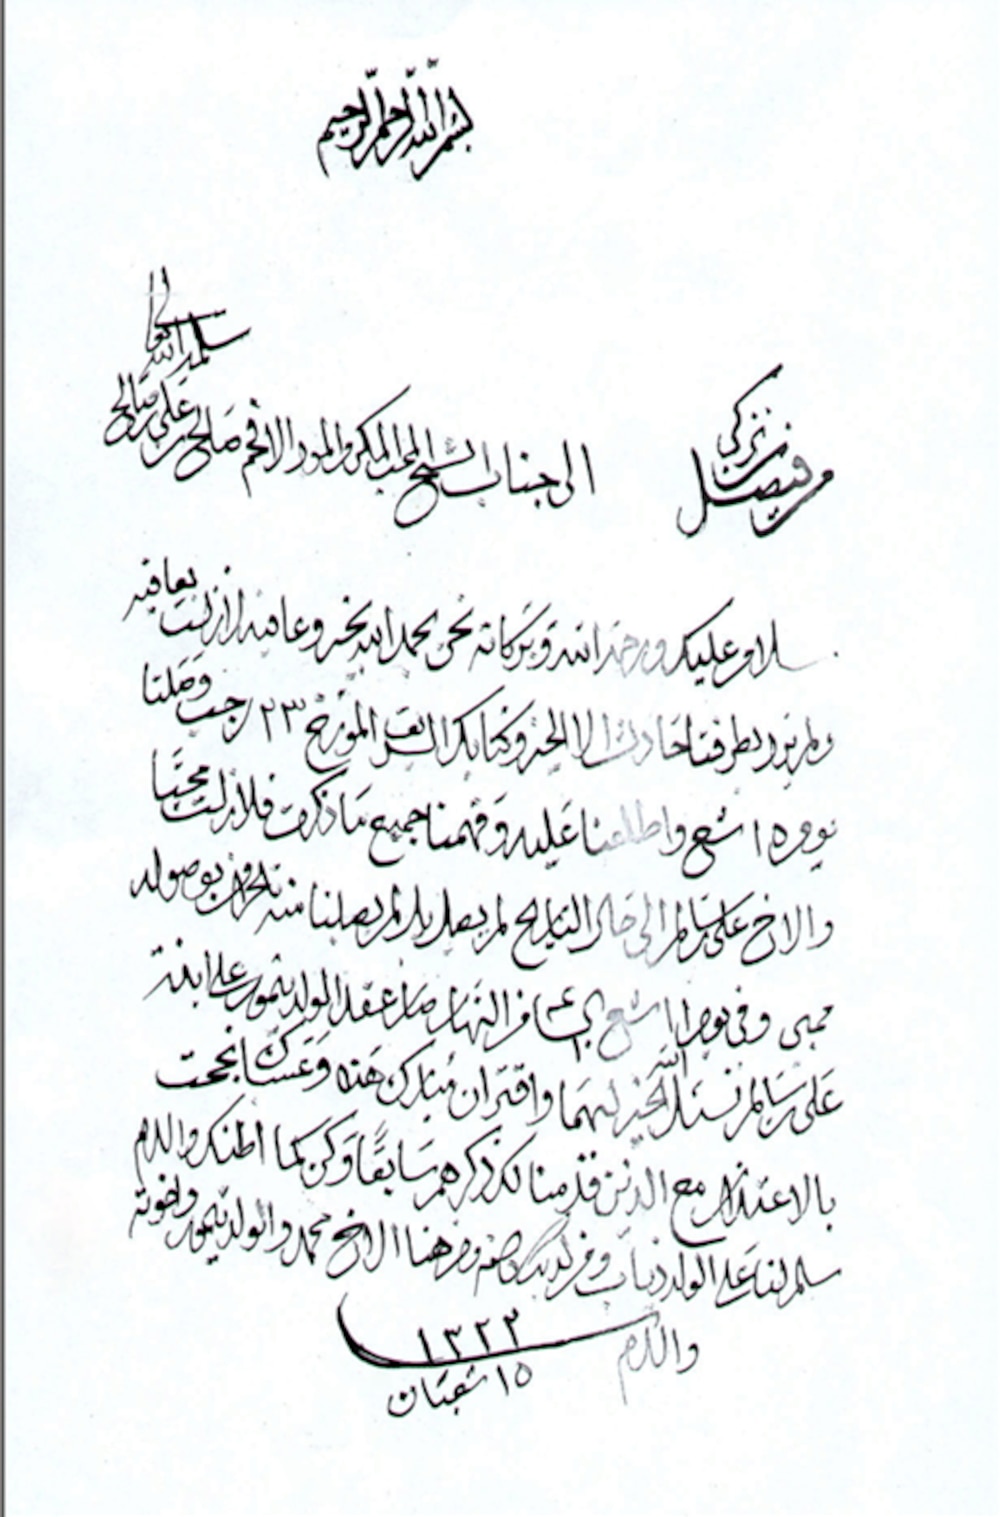 بسم الله الرحمن الرحيم
من فيصل بن تركي
الى جناب الشيخ المحب المكرم والمود الافخم صالح بن علي بن صالح
سلمه الله تعالى
سلام عليكم ورحمة الله وبركاته نحن بحمد الله بخير وعافيه لا زلت بعافيه
ولم نرد بطرفنا حادث الا الخير وكتابك الشريف المؤرخ ٢٣ رجب وصلنا
يوم ١٥ شعبان واطلعنا عليه وفهمنا جميع ما ذكرت فلا زلت محبا
والاخ علي بن سالم الى حال التاريخ لم يصل بل لم يصلنا منه تلغراف بوصوله
ممبى وفي يوم ١١ شعبان من النهار صار عقد المولد تيمور على ابنة
علي بن سالم نسئل الله الخير لهما واقتران مبارك هذه وعساك نجحت
بالاعتذار مع الذين قدمنا لك ذكرهم سابقا وكن كما اظنك والسلام
سلم لنا على الولد ومن لديك ومن هنا الاخ محمد والولد تيمور واخوته
والسلام
١٥ شعبان ١٣٢٢